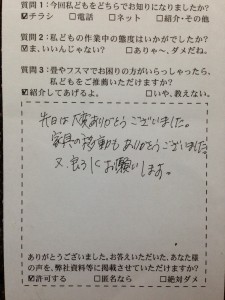 質問1：今回私どもをどちらでお知りになりましたか？
☑チラシ　□電話　□ネット　□紹介・その他
質問2：私どもの作業中の態度はいかがでしたか？
☑ま、いいんじゃない？　□ありゃ～、ダメだね。
質問3：畳やフスマでお困りの方がいらっしゃったら、
私どもをご推薦いただけますか？
☑紹介してあげるよ。　□いや、教えない。
先日は大変ありがとうございました。
家具の移動もありがとうございました。
又、よろしくお願いします。
ありがとうございました。お答えいただいた、あなた様
の声を、弊社資料等に掲載させていただけますか？
☑許可する　□匿名なら　□絶対ダメ